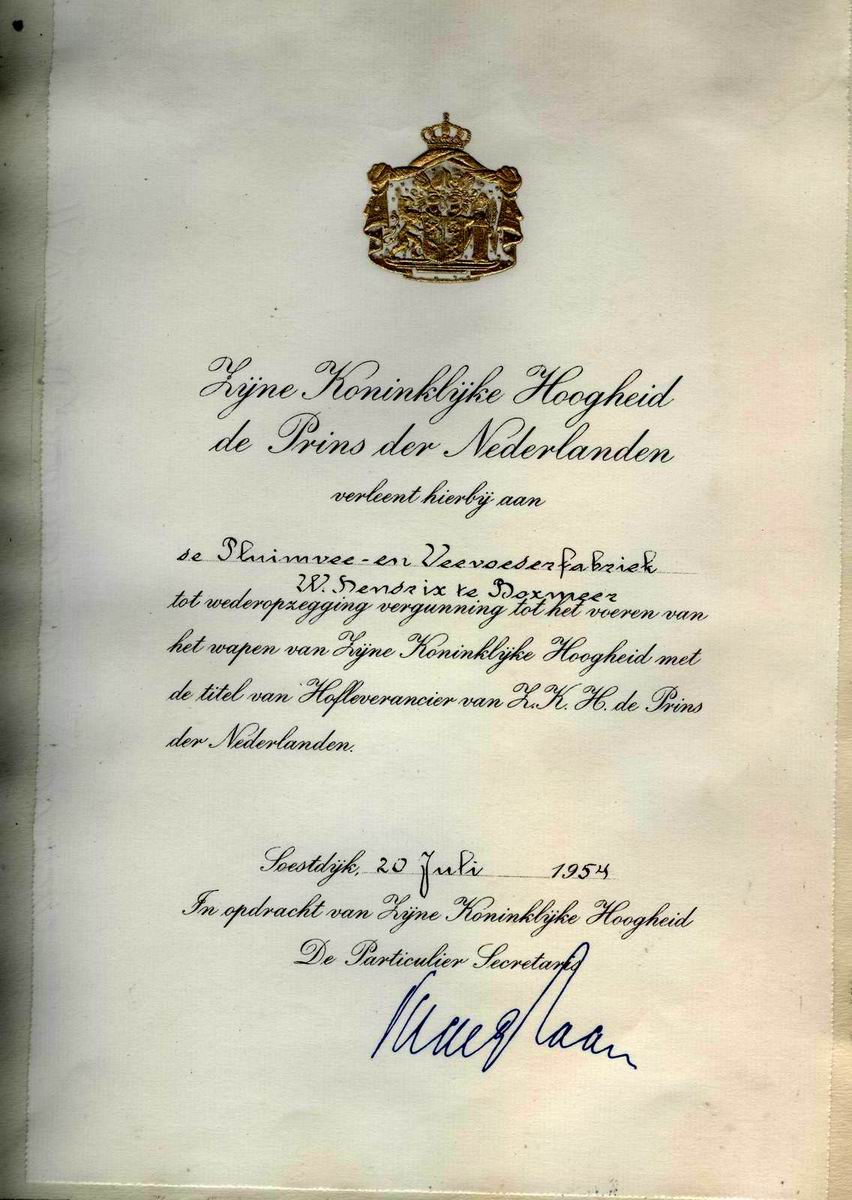 Zijne Koninklijke Hoogheid
de Prins der Nederlanden
verleent hierbij aan
de Pluimvee-en Veevoederfabriek
W. Hendrix te Boxmeer
tot wederopzegging vergunning tot het voeren van
het wapen van Zijne Koninklijke Hoogheid met
de titel van Hofleverancier van Z. K. H. de Prins
der Nederlanden.
Soestdijk, 20 Juli 1954
In opdracht van Zijne Koninklijke Hoogheid
De Particulier Secretaris